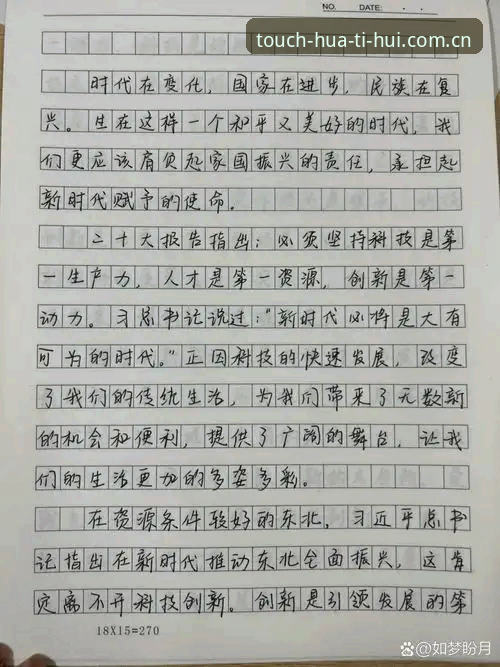 NO. DATE: · ·
touch-hua-ti-hui.com.cn
时代在变化，国家在进步，民族在复
兴。生在这样一个和平又美好的时代，我
们更应该肩负起家国振兴的责任，承担起
新时代赋予的使命。
二十大报告指出：必须坚持科技是第
一生产力，人才是第一资源，创新是第一
动力。习总书记说过："新时代必将是大有
可为的时代。"正因科技的快速发展，改变
了我们的传统生活，为我们带来了无数新
的机会和便利，提供了广阔的舞台，让我
们的生活更加的多姿多彩。
在资源条件较好的东北，习近平总书
记指出在新时代推动东北全面振兴，这肯
定离不开科技创新。创新是引领发展的第
18X15=270
Bai百科@如梦盼月